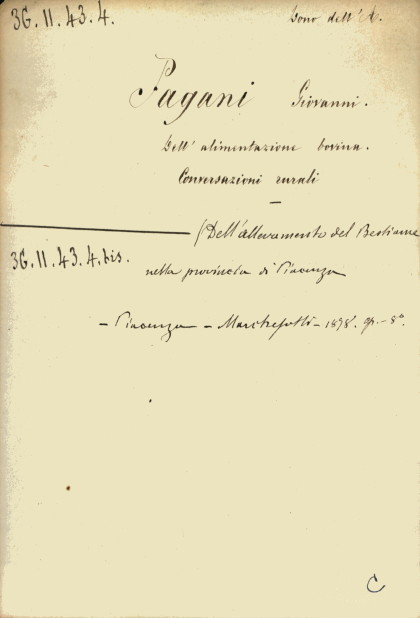 36.11.43.4.
Dono dell'A.
Pagani Giovanni.
Dell' alimentazione bovina.
Conversazioni rurali
(Dell'allevamento del Bestiame
36.11.43.4.bis.
nella provincia di Piacenza
– Piacenza – Marchesotti – 1898. op. – 8°
C